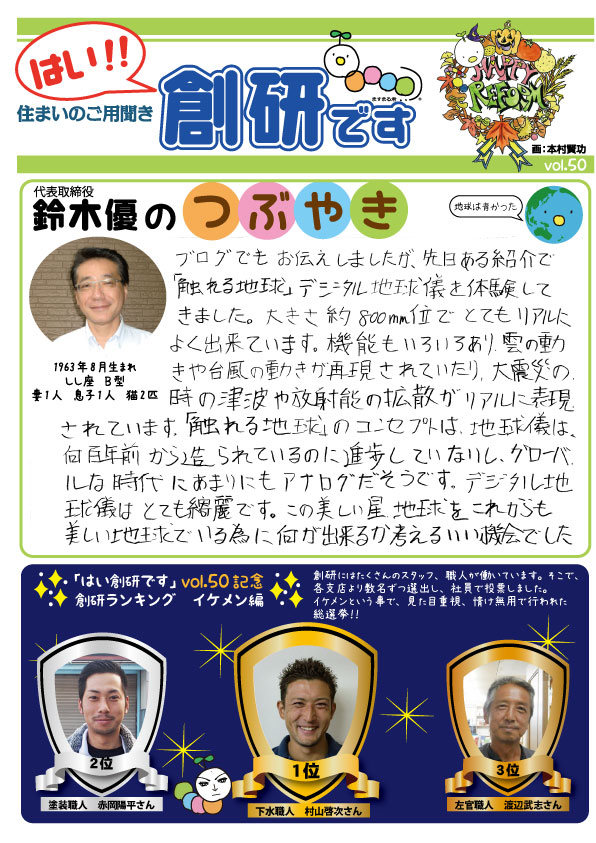 はい!!
住まいのご用聞き
創研です
ますまる君
HAPPY
REFORM
画：本村賢功
vol.50
代表取締役
鈴木優のつぶやき
地球は青かった
1963年8月生まれ
しし座 B型
妻1人 息子1人 猫2匹
ブログでもお伝えしましたが、先日ある紹介で
「触れる地球」デジタル地球儀を体験して
きました。大きさ約800mm位でとてもリアルに
よく出来ています。機能もいろいろあり、雲の動
きや台風の動きが再現されていたり、大震災の
時の津波や放射能の拡散がリアルに表現
されています。「触れる地球」のコンセプトは、地球儀は、
何百年前から造られているのに進歩していないし、グローバ
ルな時代にあまりにもアナログだそうです。デジタル地
球儀はとても綺麗です。この美しい星、地球をこれからも
美しい地球でいる為に何が出来るか考えるいい機会でした
「はい創研です」vol.50記念
創研ランキング イケメン編
創研にはたくさんのスタッフ、職人が働いています。そこで、
各支店より数名ずつ選出し、社員で投票しました。
イケメンという事で、見た目重視、情け無用で行われた
総選挙!!
2位
塗装職人 赤岡陽平さん
1位
下水職人 村山啓次さん
3位
左官職人 渡辺武志さん